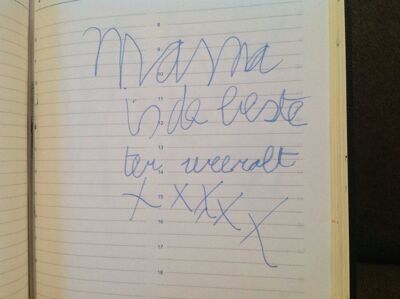 8
9
Mama
10
11
is de beste
12
13
ter weeralt
14
15
x x x x x
16
17
18